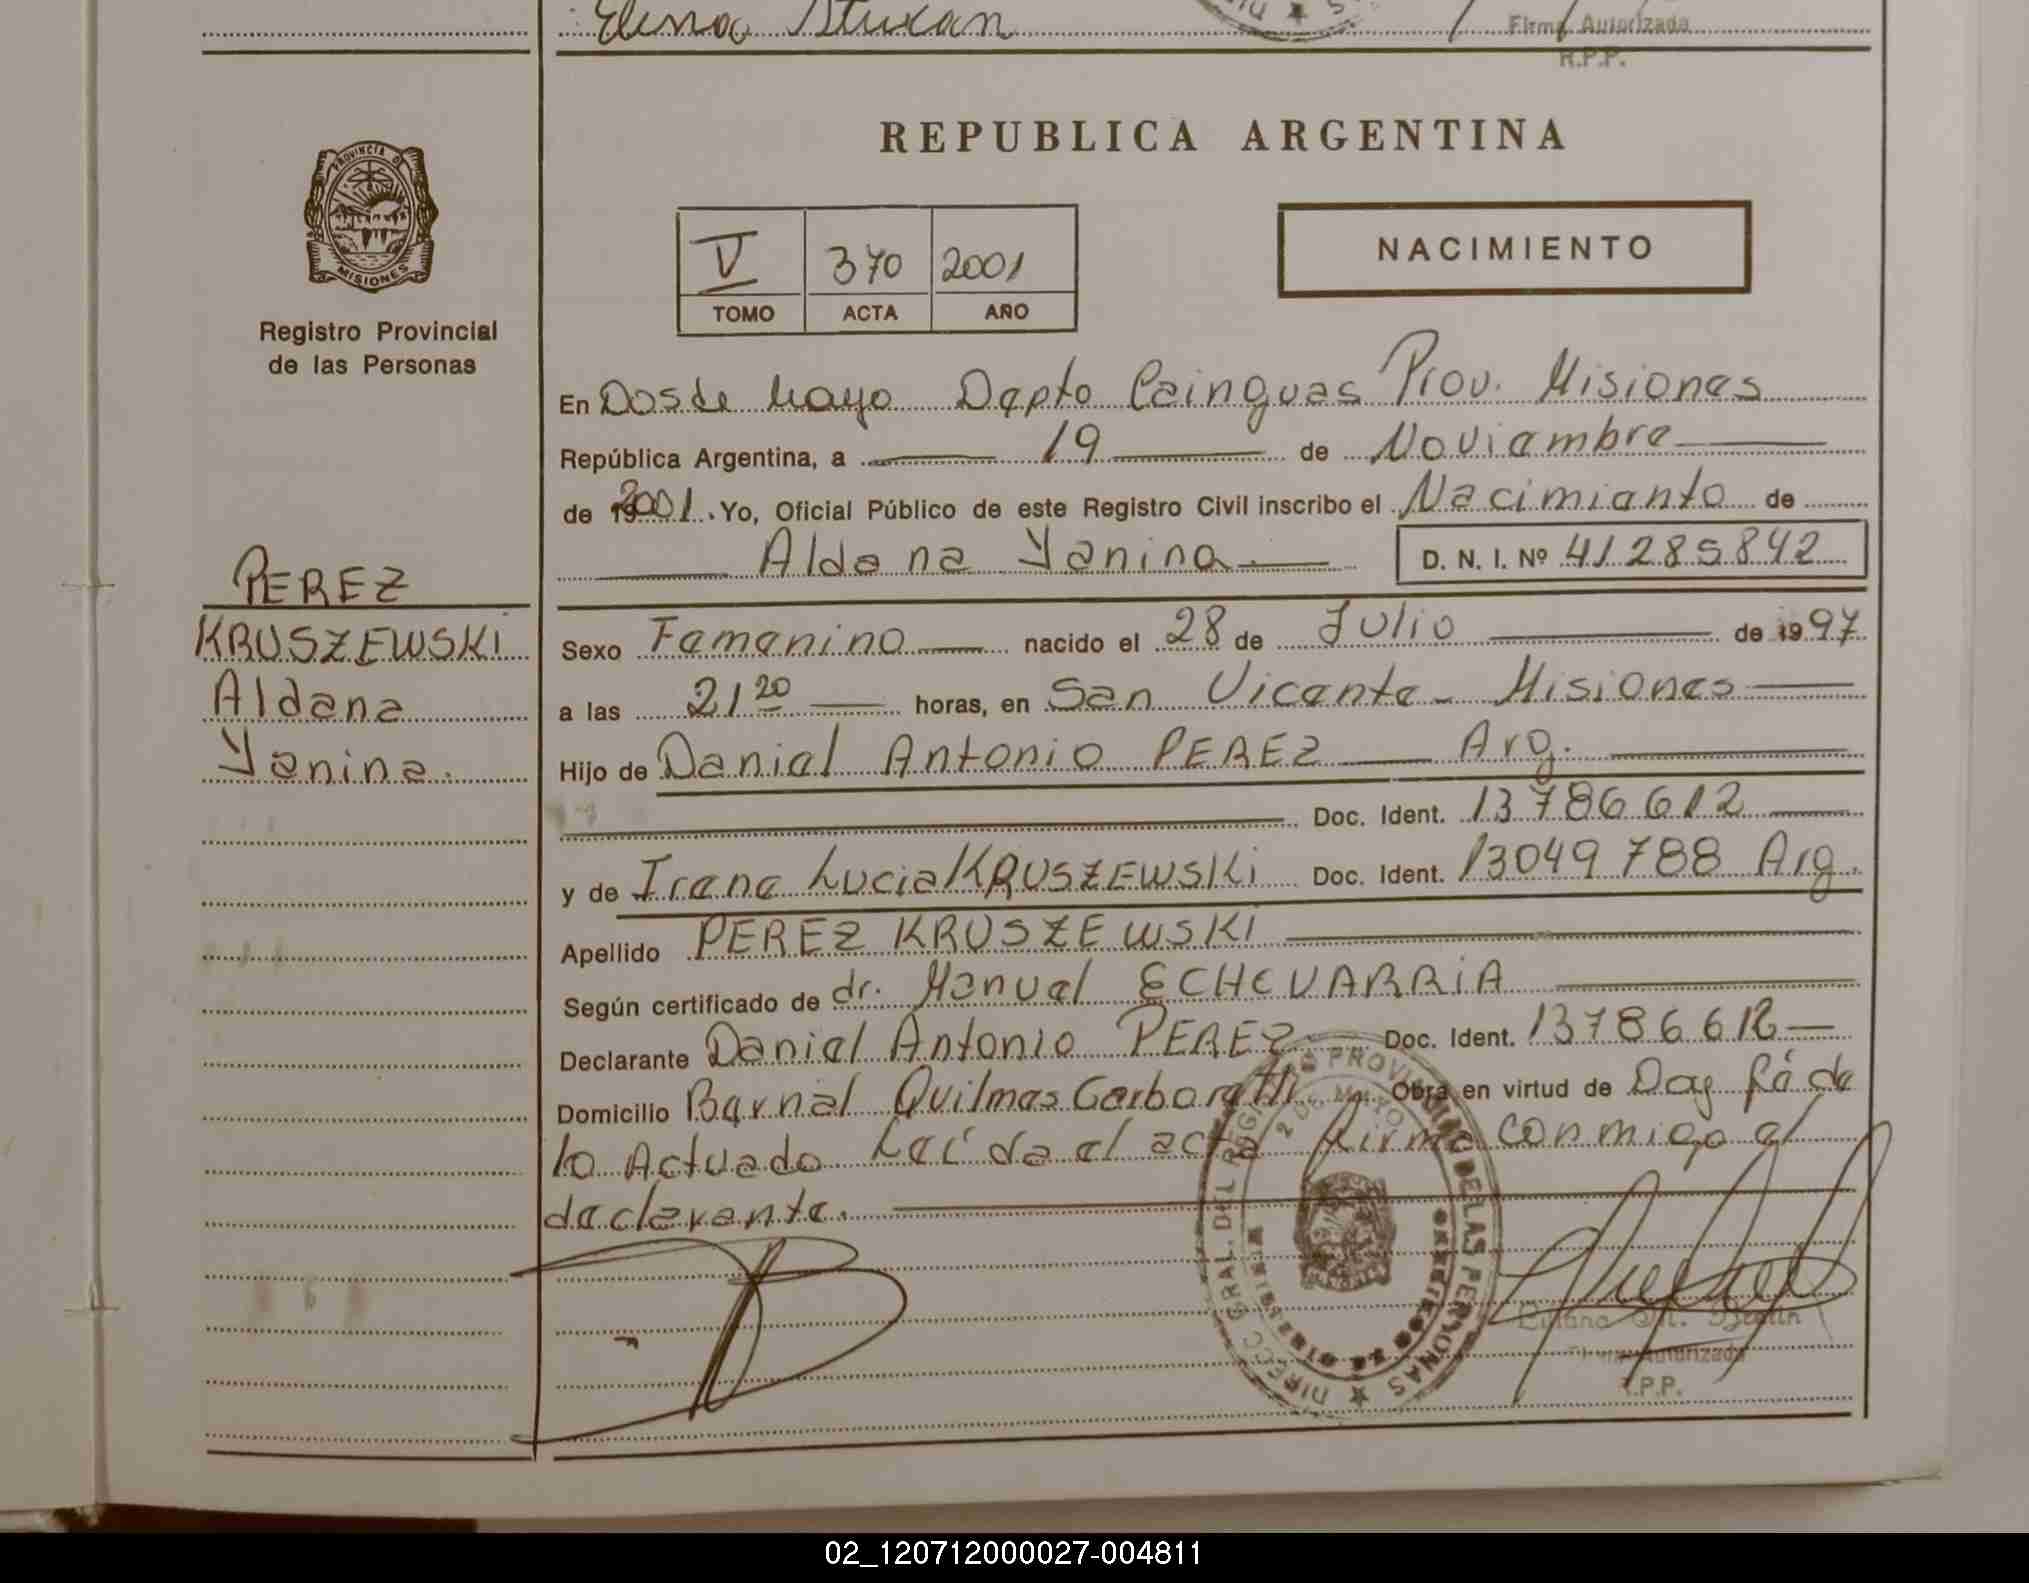 Elena
Firma Autorizada
R.P.P.
PROVINCIA D
MISIONES
Registro Provincial
de las Personas
PEREZ
KRUSZEWSKI
Aldana
Yanina.
REPUBLICA ARGENTINA
V 370 2001
TOMO ACTA AÑO
NACIMIENTO
En Dos de Mayo Depto Cainguas Prov. Misiones
República Argentina, a 19 de Noviembre
de 2001. Yo, Oficial Público de este Registro Civil inscribo el Nacimiento de
Aldana Yanina D. N. I. Nº 41285842
Sexo Femenino nacido el 28 de Julio de 1997
a las 21 20 horas, en San Vicente - Misiones
Hijo de Daniel Antonio PEREZ Arg.
Doc. Ident. 13786612
y de Irene Lucia KRUSZEWSKi Doc. Ident. 13049788 Arg.
Apellido PEREZ KRUSZEWSKI
Según certificado de dr. Manuel ECHEVARRiA
Declarante Daniel Antonio PEREZ Doc. Ident. 13786612
Domicilio Bernal Quilmes Obra en virtud de Doy fé de
lo Actuado Leída el acta firma conmigo el
declarante.
DIRECC GRAL. DEL PROVINCIAL DE LAS PERSONAS
2 DE MAYO
Autorizada
R.P.P.
02_120712000027-004811